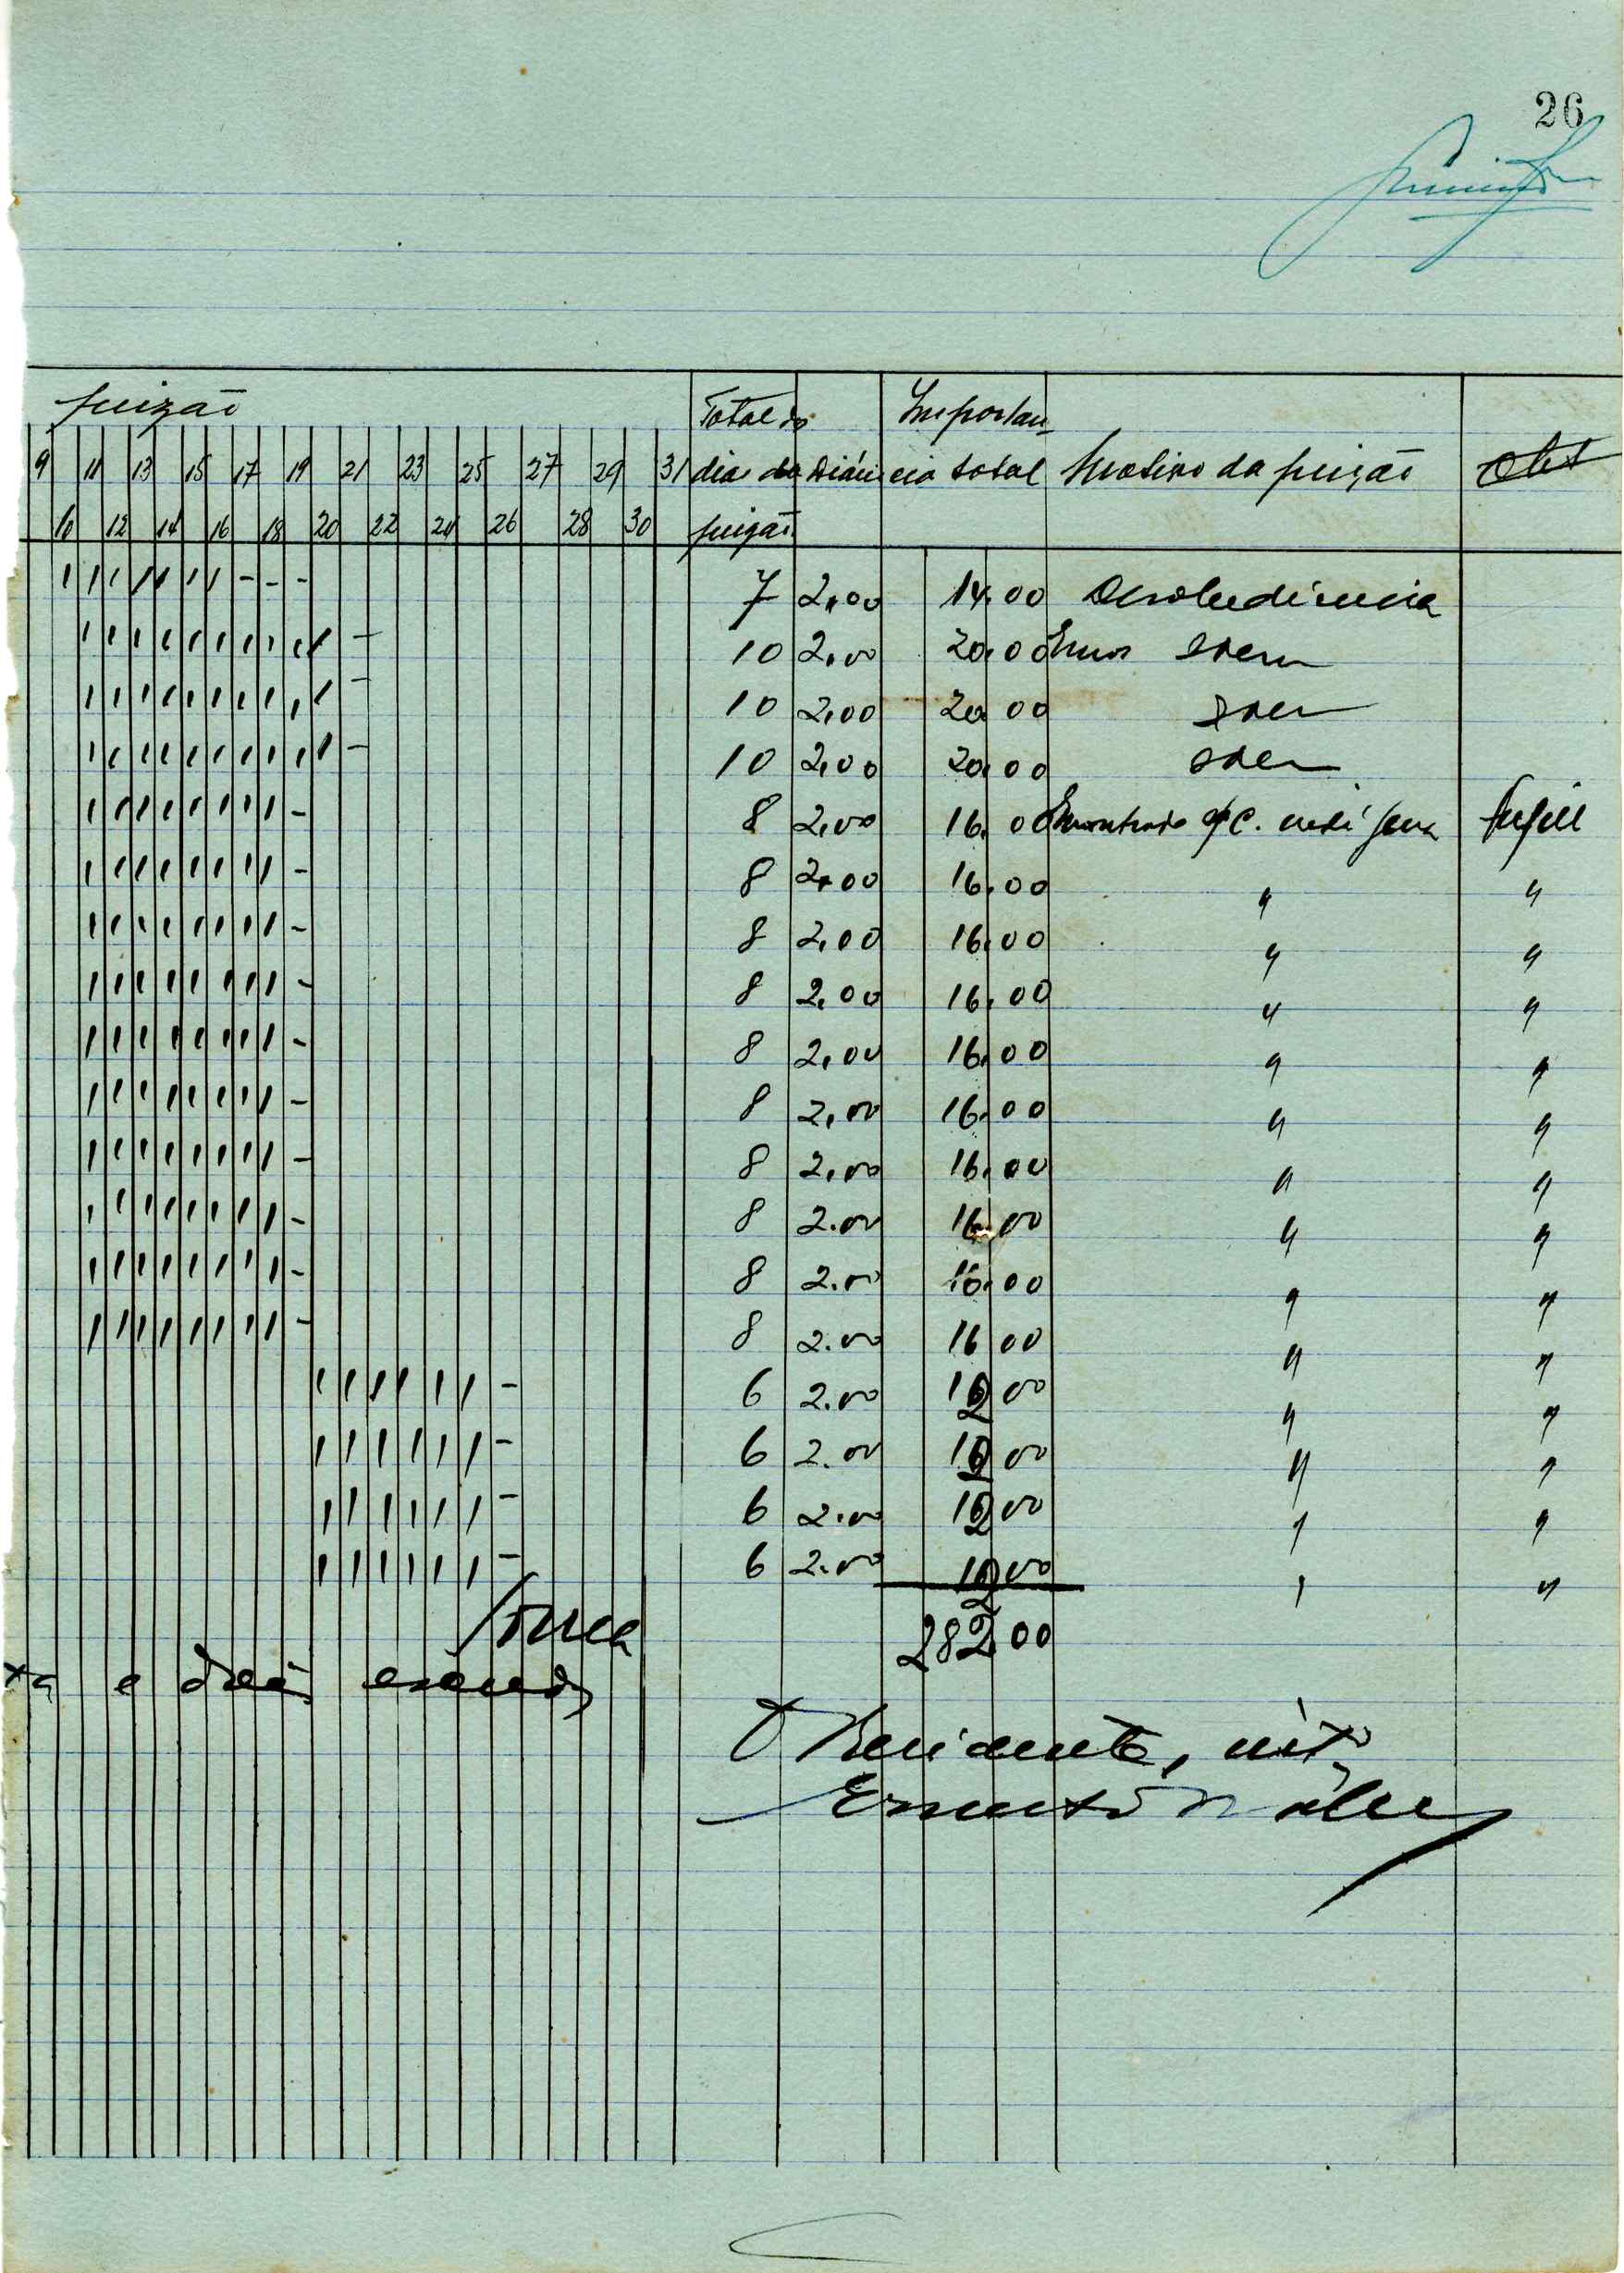 26
prizão
Total de Importan-
9 11 13 15 17 19 21 23 25 27 29 31 dias de Diári cia total Motivo da prizão Obs
10 12 14 16 18 20 22 24 26 28 30 prizão
7 2,00 14.00 Desobediencia
10 2,00 20.00 Idem
10 2,00 20 00 Idem
10 2,00 20.00 Idem
8 2,00 16.00 c. indigena
8 2,00 16.00 "
8 2,00 16.00 " "
8 2,00 16.00 " "
8 2,00 16.00 " "
8 2,00 16.00 " "
8 2,00 16.00 " "
8 2.00 16.00 " "
8 2.00 16.00 " "
8 2.00 16 00 " "
6 2.00 12 00 " "
6 2.00 12 00 " "
6 2.00 12 00 " "
6 2.00 12 00 " "
Soma 282 00
e dois escudos
O Presidente, intº